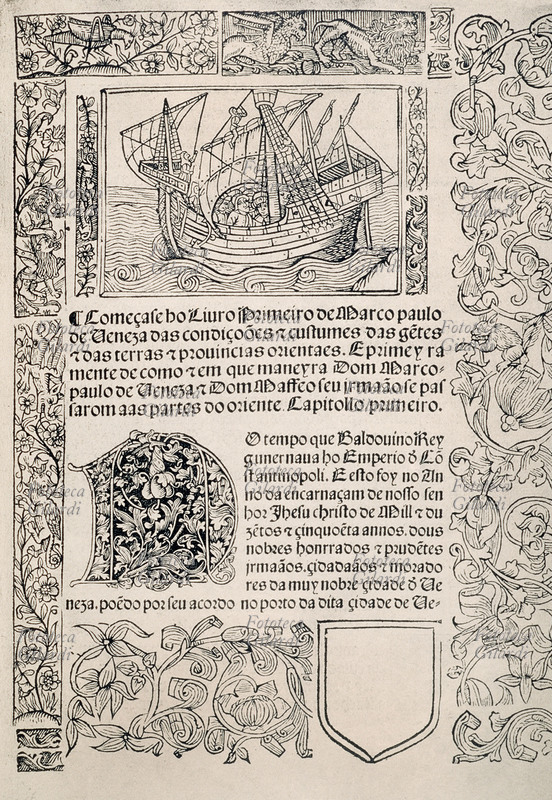 ¶ Começase ho Liuro Primeiro de Marco paulo
de Ueneza das condições ⁊ custumes das gẽtes
⁊ das terras ⁊ prouincias orientaes. E prime y ra
mente de como ⁊ em que maneyra Dom Marco-
paulo de Ueneza ⁊ Dom Maffeo seu irmaão se pas
sarom aas partes do oriente. Capitollo primeiro.
NO tempo que Baldouino Rey
guuernaua ho Emperio ð Cõ
stantinopoli. E esto foy no An
no da encarnaçam de nosso sen
hor Jhesu christo de Mill ⁊ du
zẽtos ⁊ çinquoẽta annos. dous
nobres honrrados ⁊ prudẽtes
jrmaãos. çidadaãos ⁊ morado
res da muy nobre çidade ð Ue
neza. poẽdo por seu acordo no porto da dita çidade de Ue-
Fototeca Gilardi